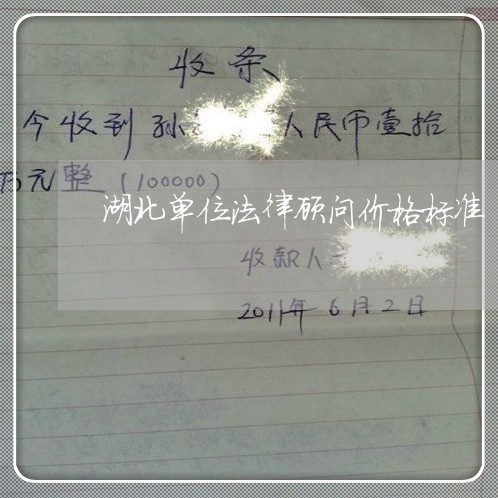 收条
今收到孙 人民币壹拾
万元整(100000)
湖北单位法律顾问价格标准
收款人
2011年6月2日